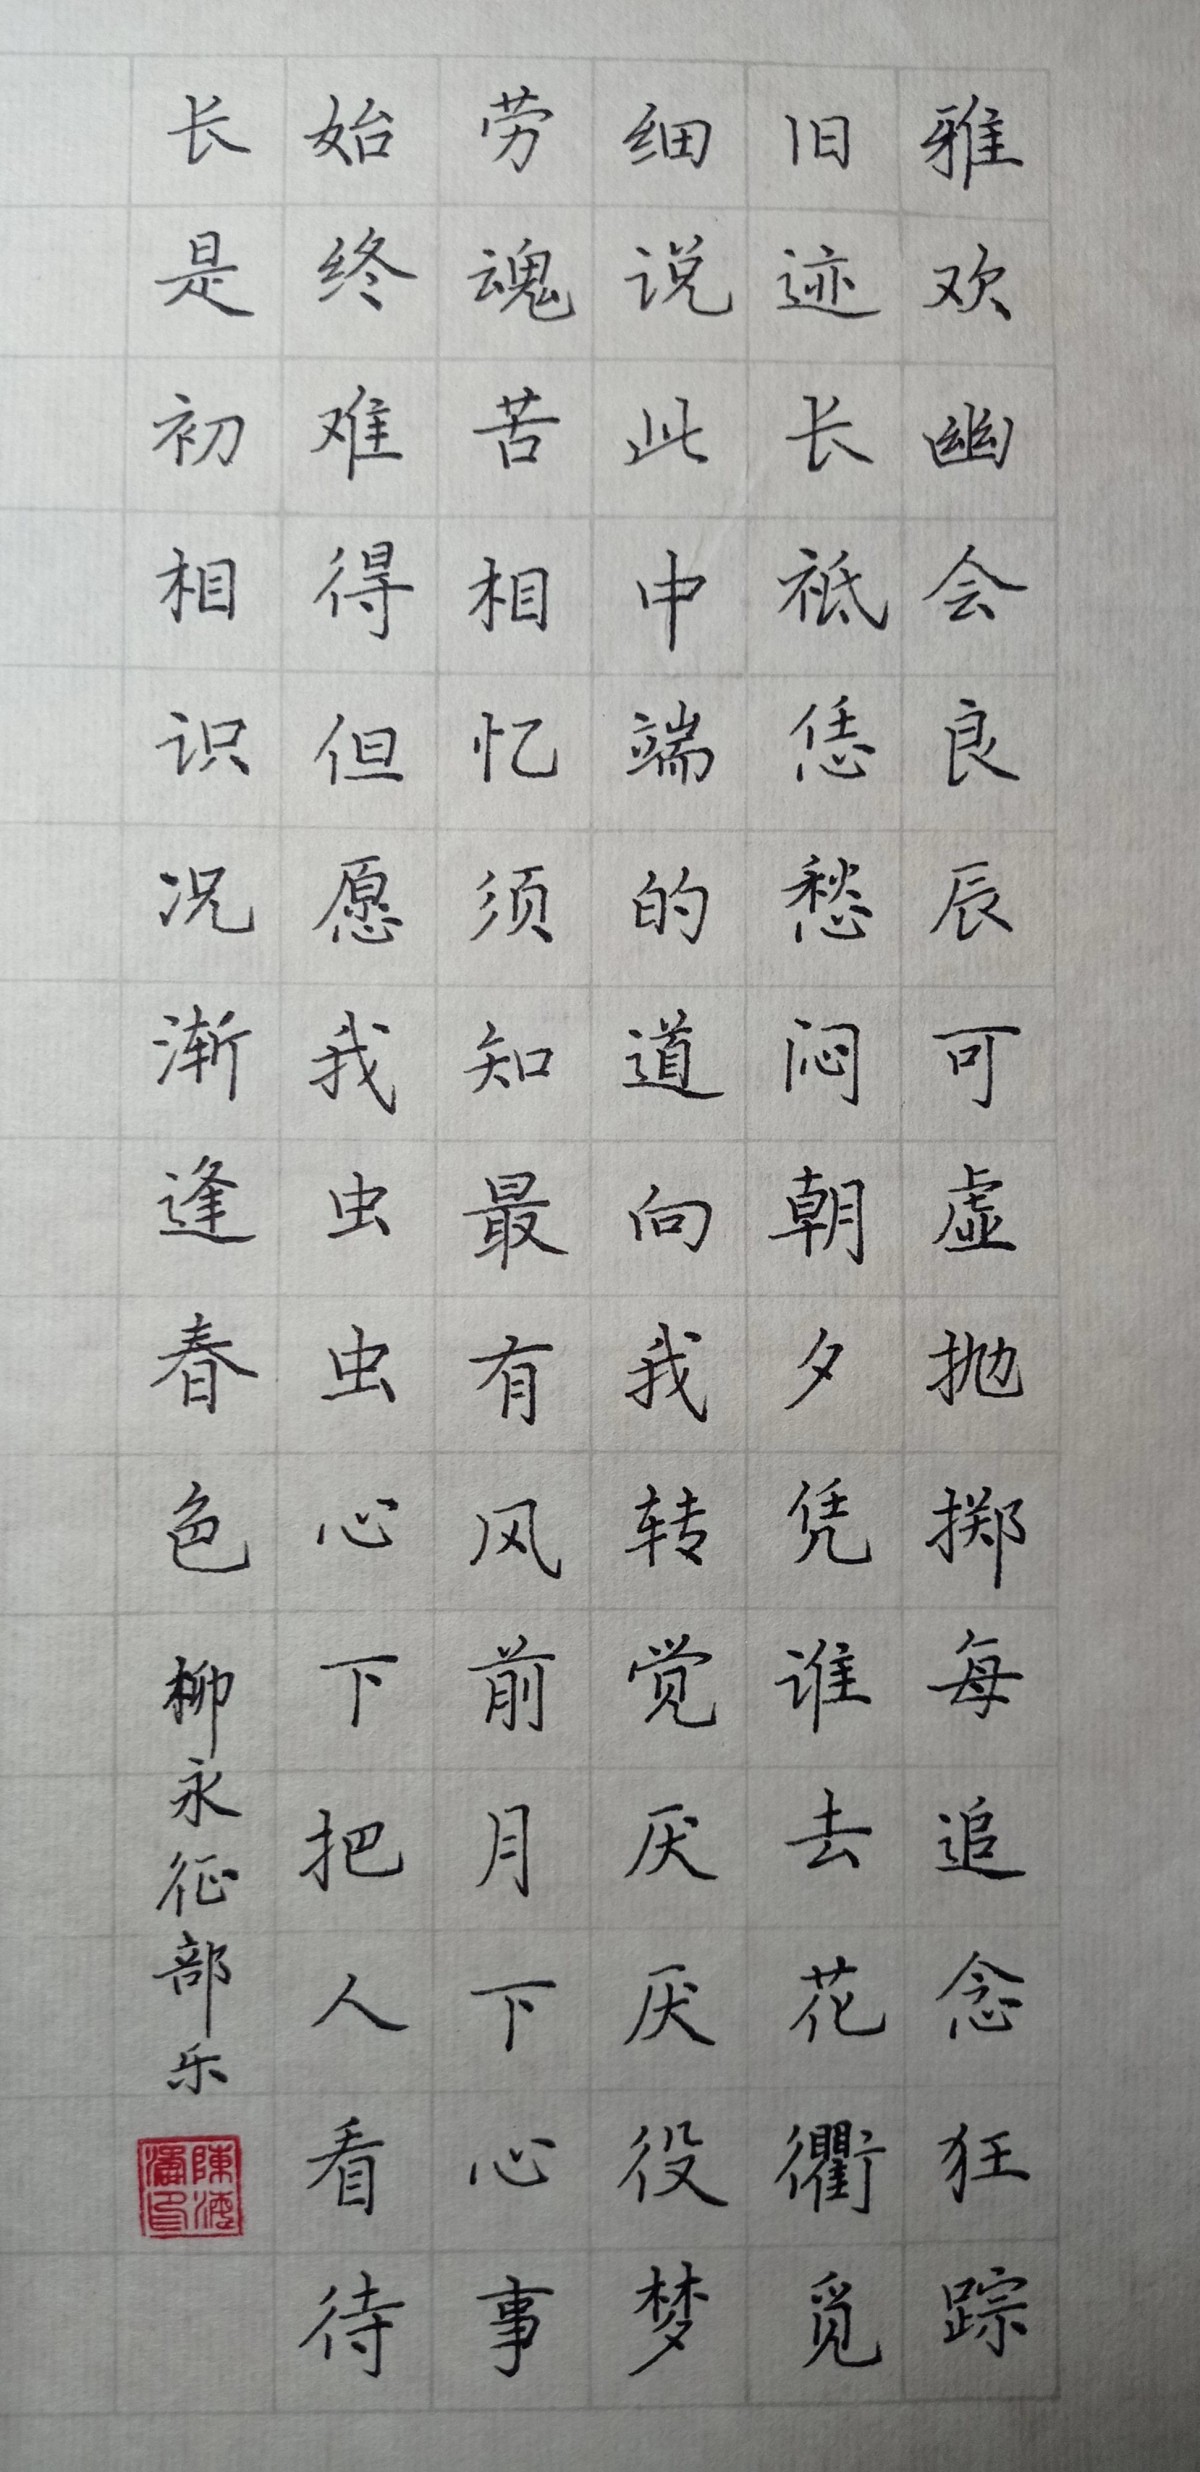 雅欢幽会良辰可虚抛掷每追念狂踪
旧迹长祗恁愁闷朝夕凭谁去花衢觅
细说此中端的道向我转觉厌厌役梦
劳魂苦相忆须知最有风前月下心事
始终难得但愿我虫虫心下把人看待
长是初相识况渐逢春色
柳永征部乐